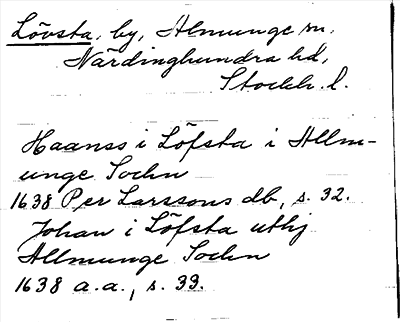 Lövsta, by, Almunge sn,
Närdinghundra hd,
Stockh. l.
Haanss i Löfsta i Allm-
unge Sochn
1638 Per Larssons db, s. 32.
Johan i Löfsta uthj
Allmunge Sochn
1638 a.a., s. 33.